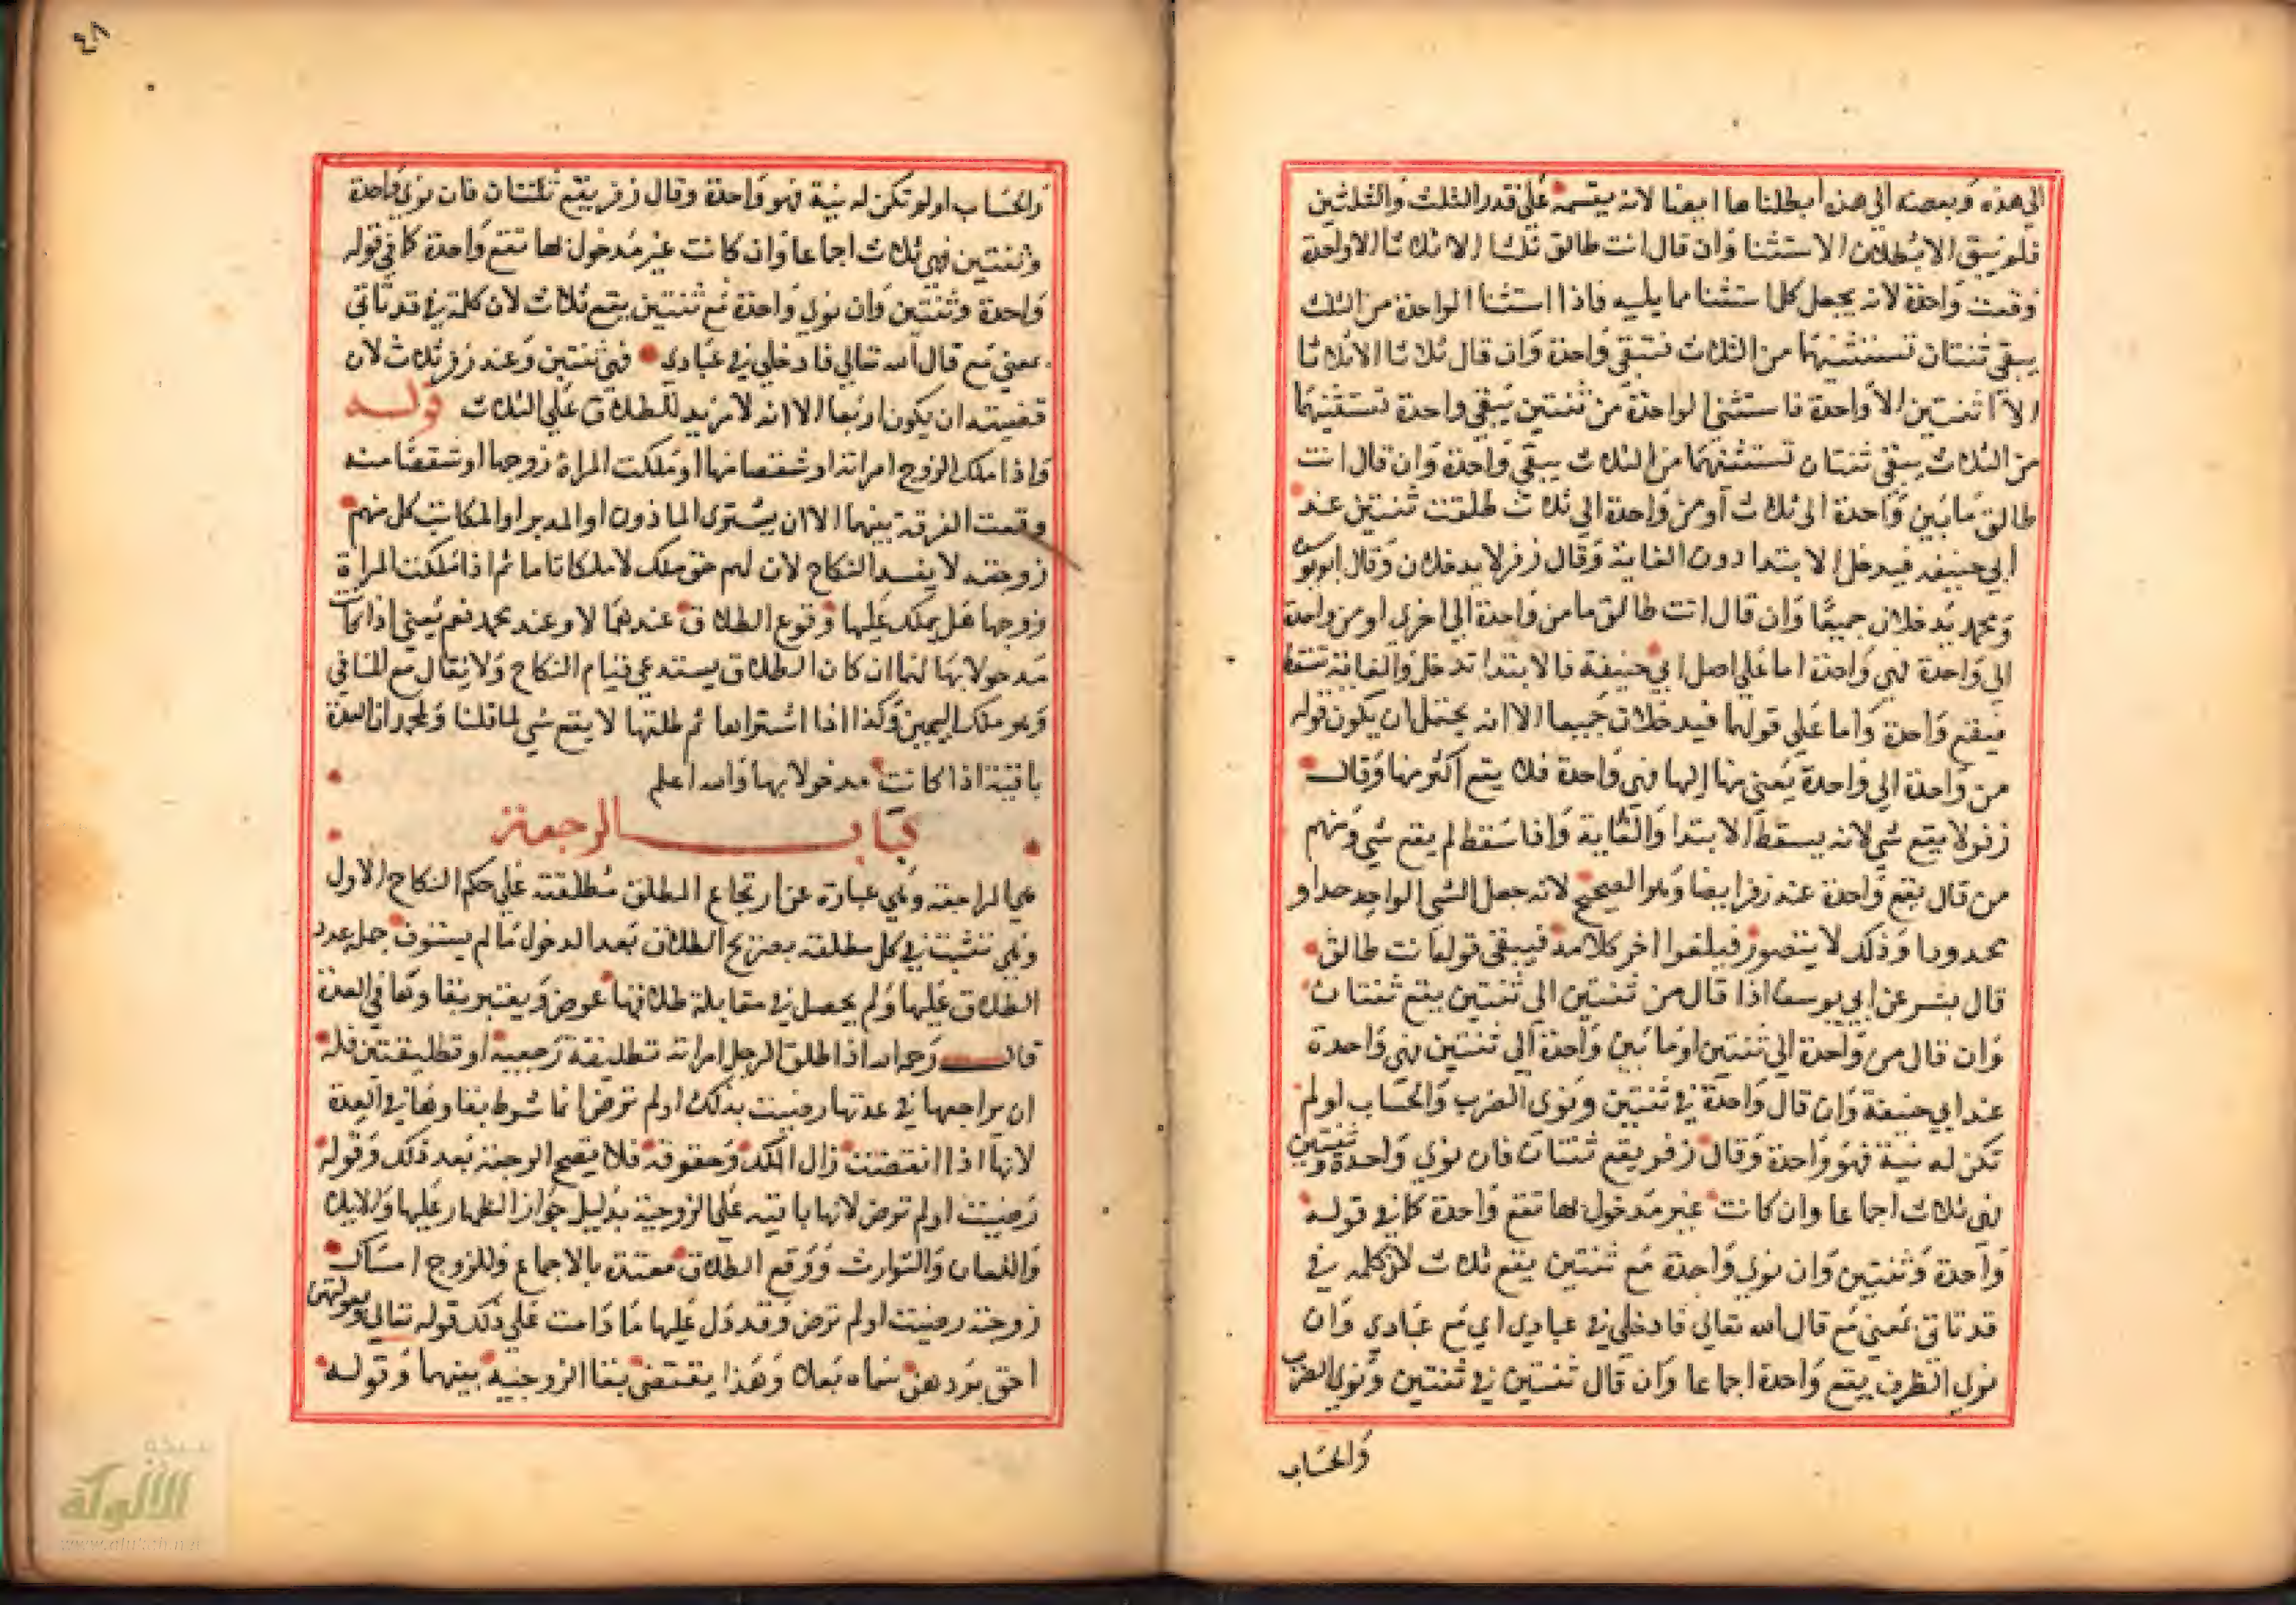 الى هذه وبعضه الى هذه ابطلناها ايضا لانه يقسمه على قدر الثلث والثلثين
فلم يبق الا بطلان الاستثنا وان قال انت طالق ثلثا الا ثلاثا الا واحدة
وقعت واحدة لانه يجعل كل استثنا مما يليه فاذا استثنا الواحدة من الثلث
يبقى ثنتان تستثنيهما من الثلاث فتبقى واحدة وان قال ثلاثا الا ثلاثا
الا اثنتين الا واحدة فاستثنى الواحدة من ثنتين يبقى واحدة تستثنيهما
من الثلاث يبقى ثنتان تستثنيهما من الثلاث يبقى واحدة وان قال انت
طالق ما بين واحدة الى ثلاث او من واحدة الى ثلاث طلقت ثنتين عند
ابي حنيفه فيدخل الابتدا دون الغاية وقال زفر لا يدخلان وقال ابو يوسف
ومحمد يدخلان جميعا وان قال انت طالق ما من واحدة الى اخرى او من واحدة
الى واحدة فهي واحدة اما على اصل ابي حنيفة فالابتدا تدخل والغاية تسقط
فيقع واحدة واما على قولهما فيدخلان جميعا الا انه يحتمل ان يكون قوله
من واحدة الى واحدة يعني منها اليها فهي واحدة فلا يقع اكثر منها وقال
زفر لا يقع شي لانه يسقط الابتدا والغاية واذا سقط لم يقع شي ومنهم
من قال يقع واحدة عند زفر ايضا وهو الصحيح لانه جعل الشي الواحد حدا و
محدودا وذلك لا يتصور فيلغوا اخر كلامه فيبقى قوله انت طالق
قال بشر عن ابي يوسف اذا قال من ثنتين الى ثنتين يقع ثنتان
وان قال من واحدة الى ثنتين او ما بين واحدة الى ثنتين فهي واحدة
عند ابي حنيفة وان قال واحدة في ثنتين ونوى الضرب والحساب او لم
تكن له نية فهو واحدة وقال زفر يقع ثنتان فان نوى واحدة وثنتين
فهي ثلاث اجماعا وان كانت غير مدخول بها تقع واحدة كما في قوله
واحدة وثنتين وان نوى واحدة مع ثنتين يقع ثلاث لان كلمه في
قد تاتي بمعنى مع قال الله تعالى فادخلي في عبادي اي مع عبادي وان
نوى الظرف يقع واحدة اجماعا وان قال ثنتين في ثنتين ونوى الضرب
والحساب
٤٨
والحساب او لم تكن له نية فهو واحدة وقال زفر يقع ثلثتان فان نوى واحدة
وثنتين فهي ثلاث اجماعا وان كانت غير مدخول بها تقع واحدة كما في قوله
واحدة وثنتين وان نوى واحدة مع ثنتين يقع ثلاث لان كلمة في قد تاتي
بمعنى مع قال الله تعالى فادخلي في عبادي فهي ثنتين وعند زفر ثلاث لان
قضيته ان يكون اربعا الا انه لا مزيد للطلاق على الثلاث قوله
واذا ملك الزوج امراته او شقصا منها او ملكت المراة زوجها او شقصا منه
وقعت الفرقة بينهما الا ان يشترى الماذون او المدبر او المكاتب كل منهم
زوجته لا يفسد النكاح لان لهم حق ملك لا ملكا تاما ثم اذا ملكت المراة
زوجها هل يملك عليها وقوع الطلاق عندهما لا وعند محمد نعم يعني اذا كانت
مدخولا بها لهما ان كان الطلاق يستدعي قيام النكاح ولا يقال مع المنافي
وهو ملك اليمين وكذا اذا اشتراها ثم طلقها لا يقع شي لما قلنا ولمحمد ان العدة
باقية اذا كانت مدخولا بها والله اعلم
كتاب الرجعة
هي المراجعة وهي عبارة عن ارتجاع المطلق مطلقته على حكم النكاح الاول
وهي تثبت في كل مطلقه بصريح الطلاق بعد الدخول ما لم يستوف جمل عدد
الطلاق عليها ولم يحصل في مقابلة طلاقها عوض ويعتبر بقاوها في العدة
قال رحمه الله اذا طلق الرجل امراته تطليقة رجعية او تطليقتين فله
ان يراجعها في عدتها رضيت بذلك او لم ترض انما شرط بقاوها في العدة
لانها اذا انقضت زال الملك وحقوقه فلا يصح الرجعة بعد ذلك وقوله
رضيت او لم ترض لانها باقيه على الزوجية بدليل جواز الظهار عليها والايلا
واللعان والتوارث ووقع الطلاق معتدة بالاجماع وللزوج امساك
زوجته رضيت او لم ترض وقد دل عليها ما دامت على ذلك قوله تعالى وبعولتهن
احق بردهن سماه بعلا وهذا يقتضى بقا الزوجيه بينهما وقوله
شبكة
الألوكة
www.alukah.net